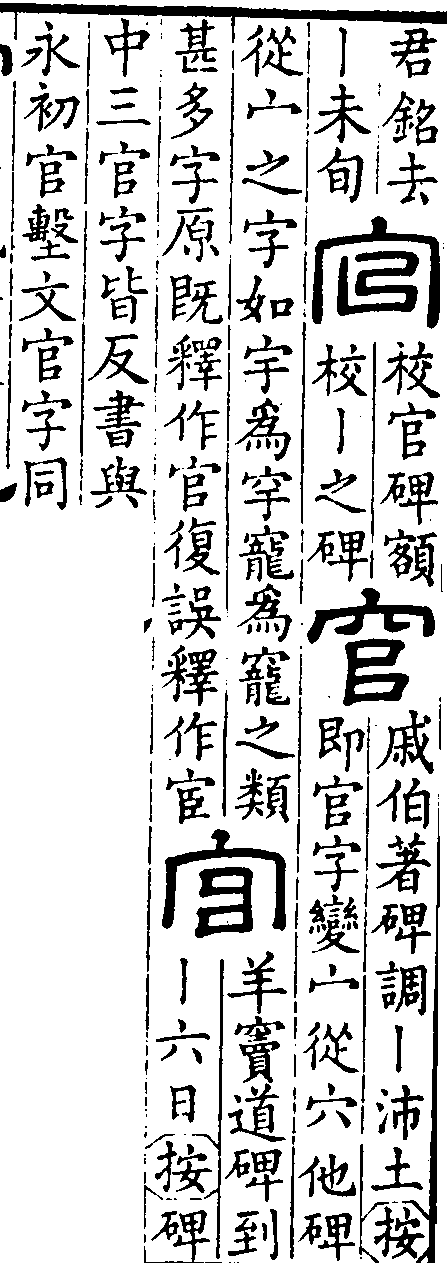 君銘去
丨未旬
官
校官碑額
校丨之碑
官
戚伯著碑調丨沛土按
即官字變宀從穴他碑
從宀之字如宇爲穻寵爲竉之類
甚多字原既釋作官復誤釋作宦
官
羊竇道碑到
丨六日按碑
中三官字皆反書與
永初官墼文官字同